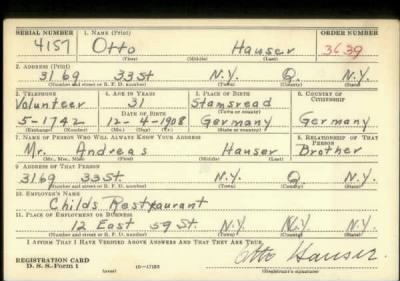 SERIAL NUMBER 1. NAME (Print) ORDER NUMBER
4157 Otto Hauser 3639
(First) (Middle) (Last)
2. ADDRESS (Print)
3169 33 St N.Y. Q. N.Y.
(Number and street or R. F. D. number) (Town) (County) (State)
3. TELEPHONE 4. AGE IN YEARS 5. PLACE OF BIRTH 6. COUNTRY OF CITIZENSHIP
Volunteer 31 Stamsread
DATE OF BIRTH (Town or county)
5-1742 12-4-1908 Germany Germany
(Exchange) (Number) (Mo.) (Day) (Yr.) (State or country)
7. NAME OF PERSON WHO WILL ALWAYS KNOW YOUR ADDRESS 8. RELATIONSHIP OF THAT PERSON
Mr. Andreas Hauser Brother
(Mr., Mrs., Miss) (First) (Middle) (Last)
9. ADDRESS OF THAT PERSON
3169 33 St. N.Y. Q. N.Y.
(Number and street or R. F. D. number) (Town) (County) (State)
10. EMPLOYER'S NAME
Childs Restaurant
11. PLACE OF EMPLOYMENT OR BUSINESS
12 East 59 St. N.Y. N.Y. N.Y.
(Number and street or R. F. D. number) (Town) (County) (State)
I AFFIRM THAT I HAVE VERIFIED ABOVE ANSWERS AND THAT THEY ARE TRUE.
REGISTRATION CARD Otto Hauser
D. S. S. Form 1 (over) (Registrant's signature)